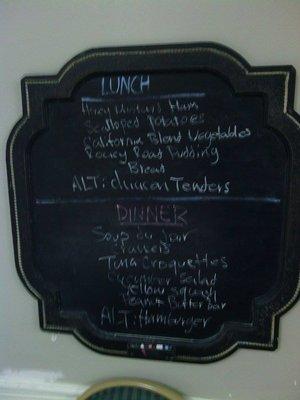 LUNCH
Honey Mustard Ham
Scalloped Potatoes
California Blend Vegetables
Rocky Road Pudding
Bread
ALT: chicken Tenders
DINNER
Soup du jour
Tuna Croquettes
Cucumber Salad
Yellow squash
Peanut Butter bar
ALT: Hamburger